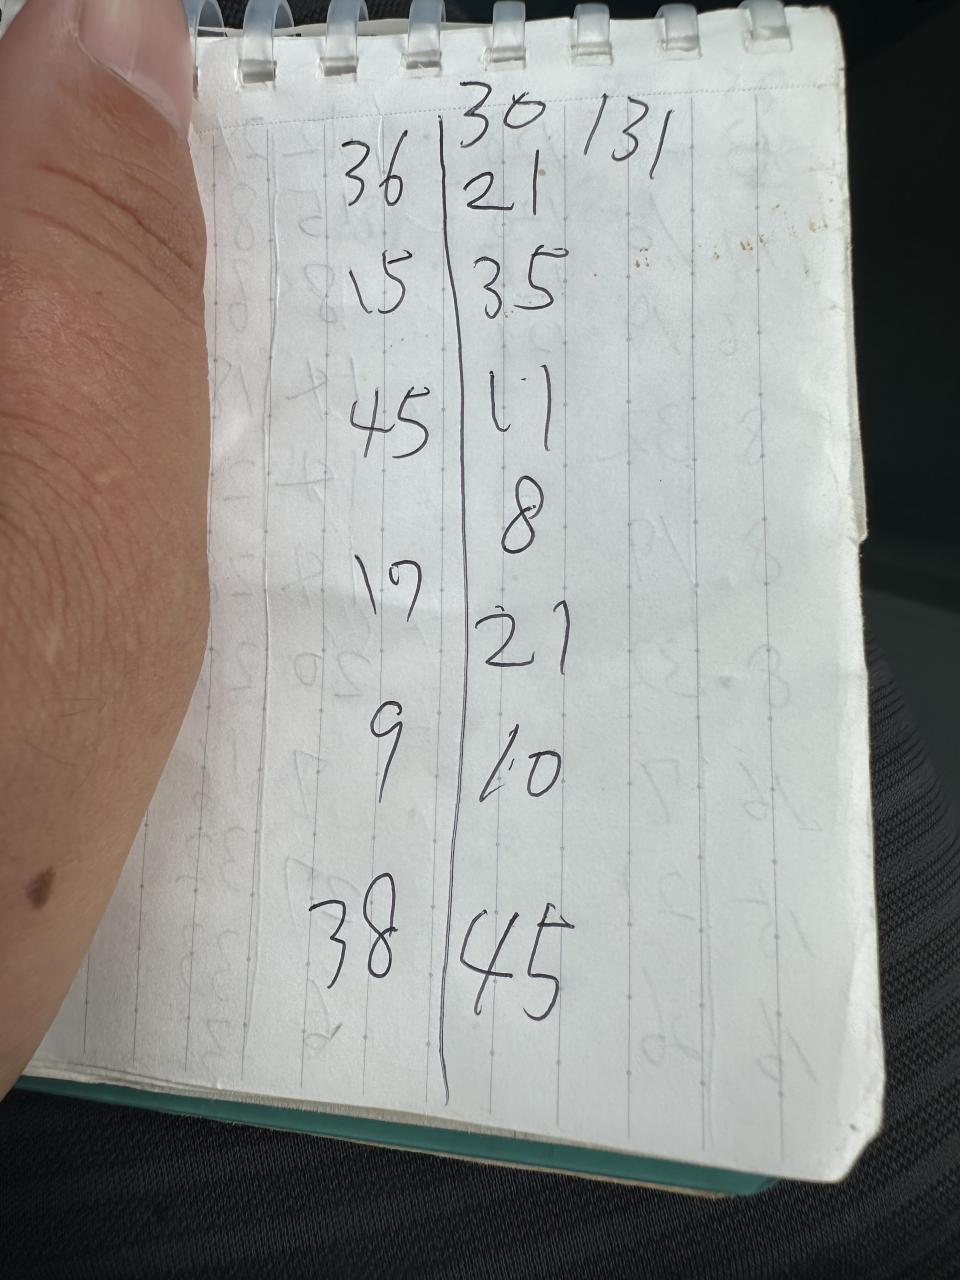 30 131
36 21
15 35
45 11
8
17 21
9 10
38 45